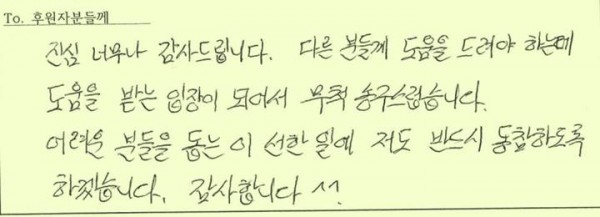 To. 후원자분들께
진심 너무나 감사드립니다. 다른 분들께 도움을 드려야 하는데
도움을 받는 입장이 되어서 무척 송구스럽습니다.
어려운 분들을 돕는 이 선한 일에 저도 반드시 동참하도록
하겠습니다. 감사합니다 ^^.